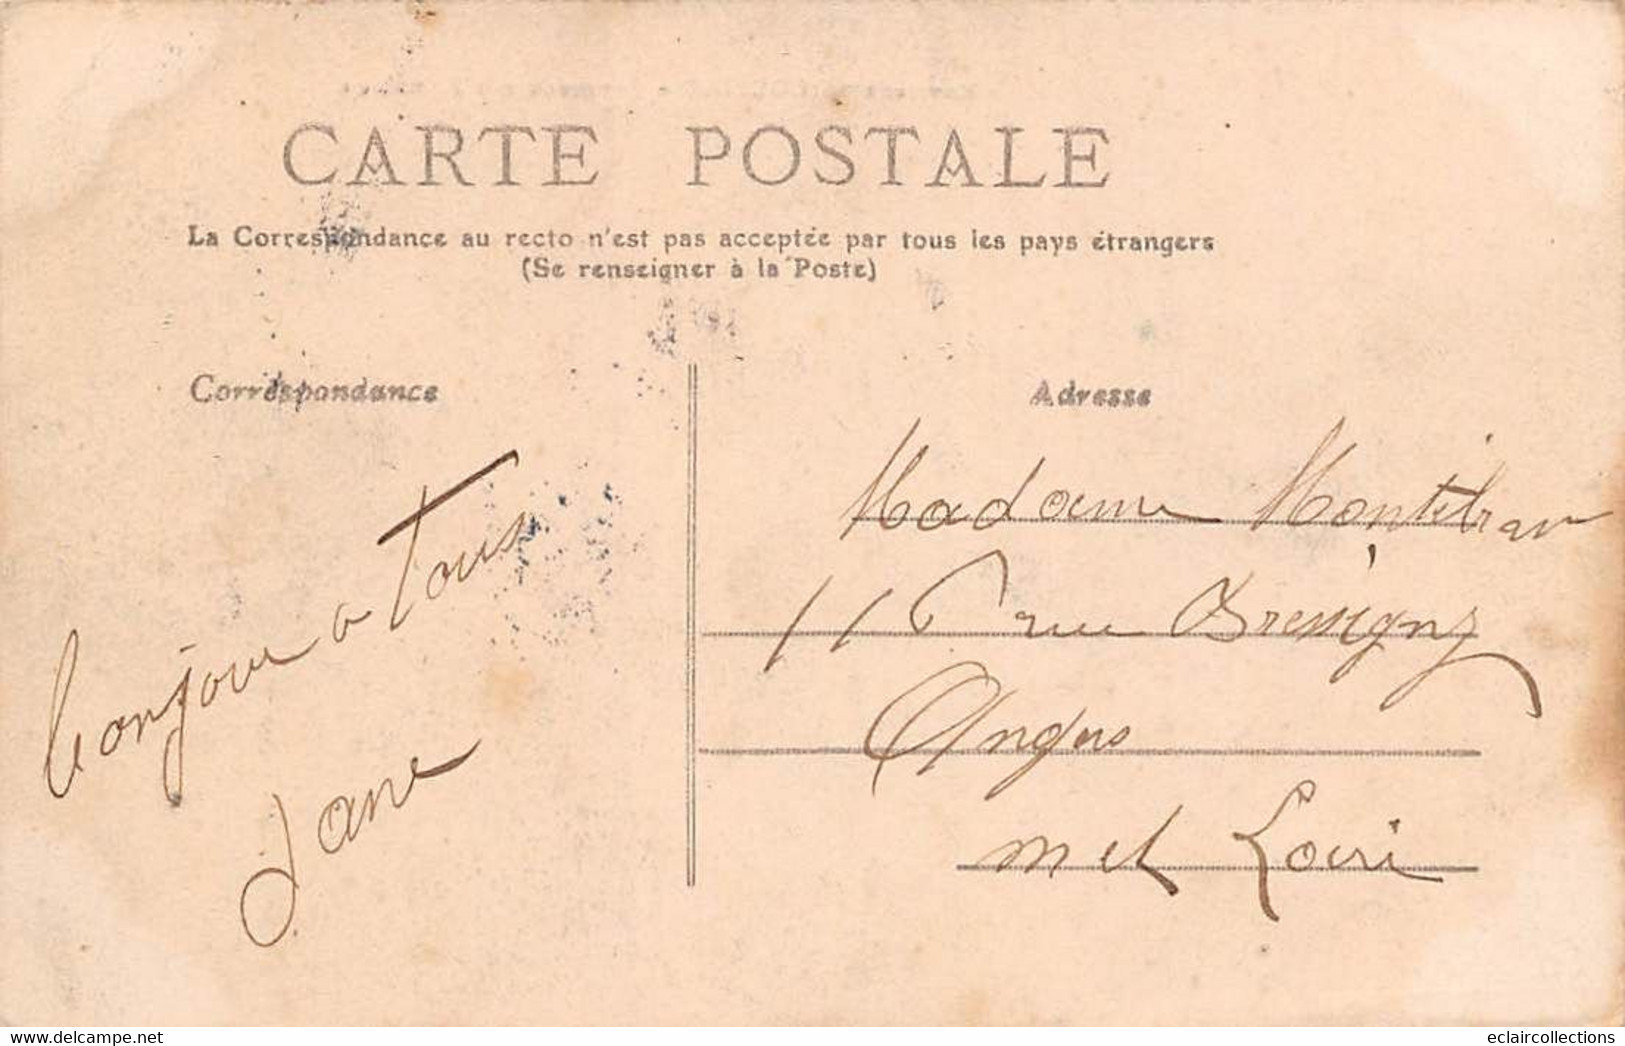 CARTE POSTALE
La Correspondance au recto n'est pas acceptée par tous les pays étrangers
(Se renseigner à la Poste)
Correspondance
bonjour a tous
Jane
Adresse
Madame
11 rue Bressigny
Angers
m et Loire
www.delcampe.net
eclaircollections